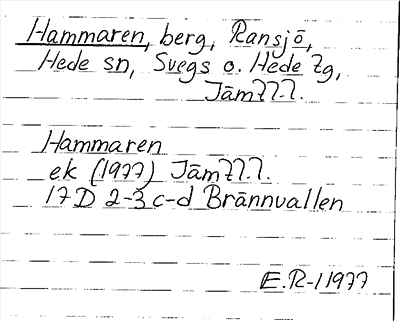 Hammaren, berg, Ransjö,
Hede sn, Svegs o. Hede tg,
Hammaren
ek (1977)
17D 2-3 c-d Brännvallen
E.R-l 1977